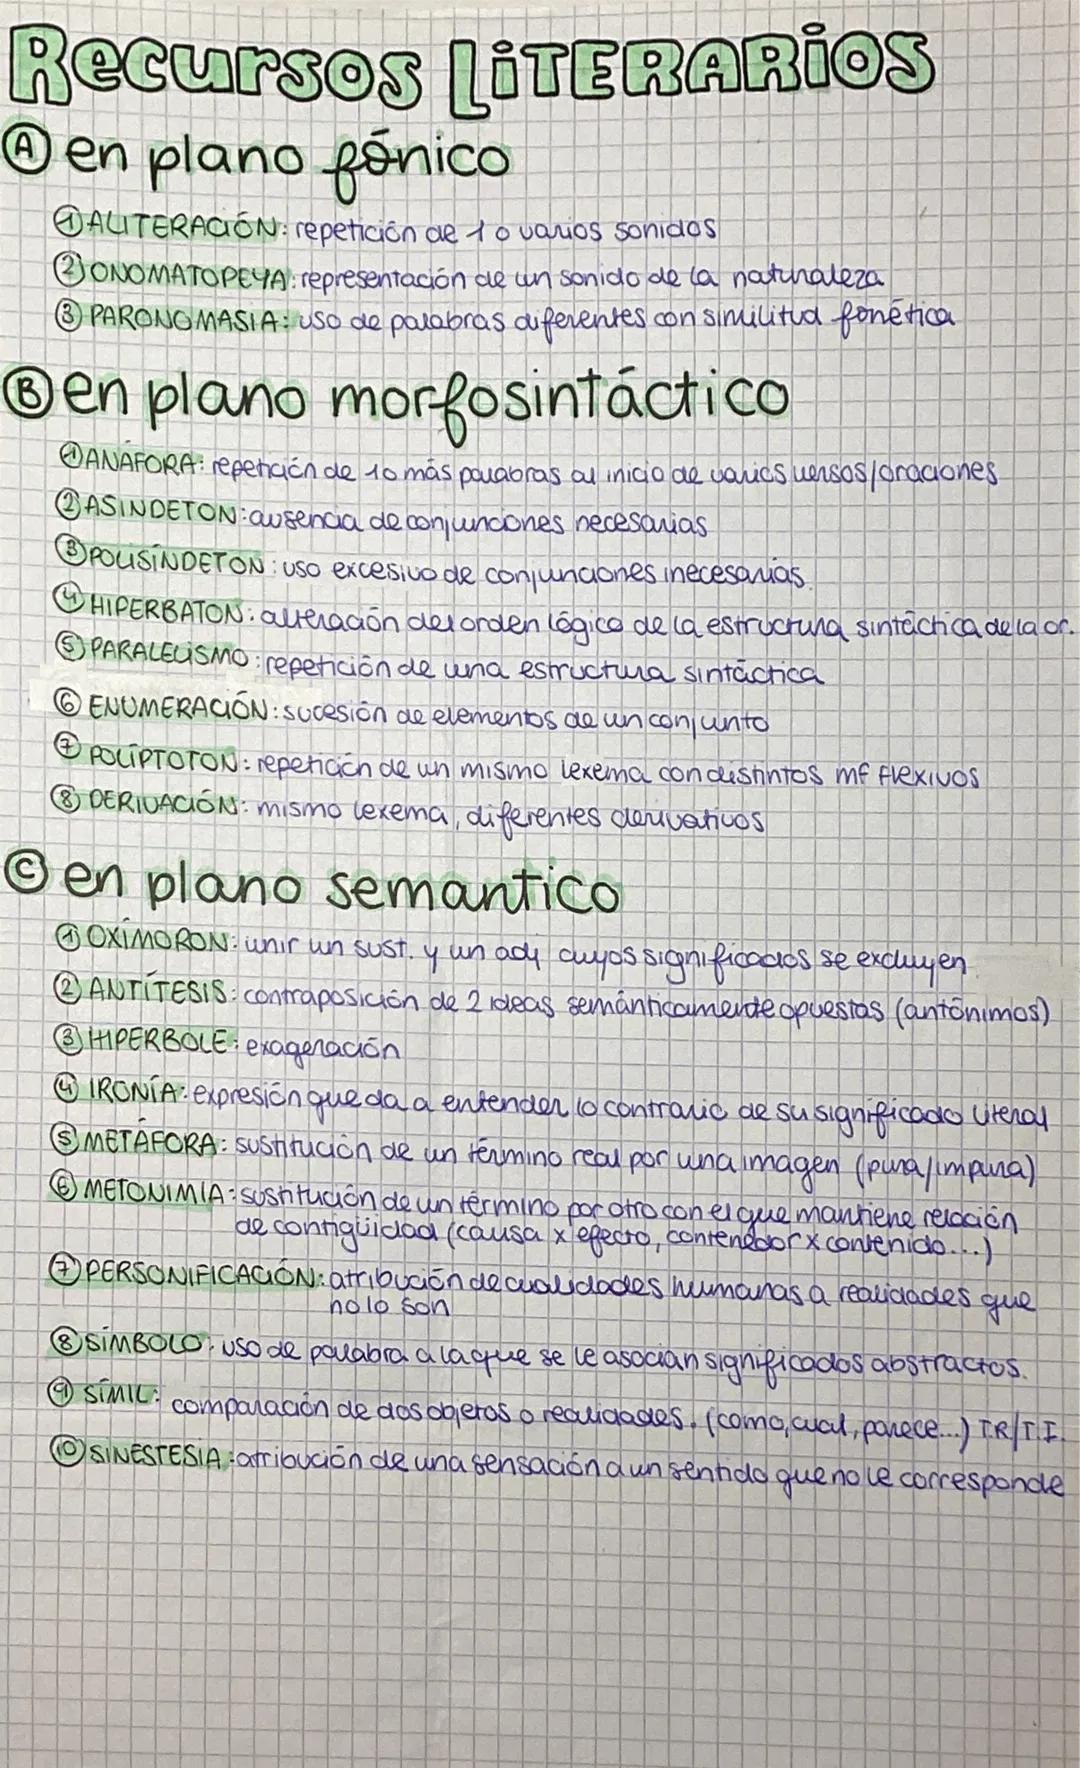 Recursos LiTERARiOS
Ⓐ en plano fónico
① ALITERACIÓN: repetición de 1 o varios sonidos
② ONOMATOPEYA: representación de un sonido de la naturaleza
③ PARONOMASIA: uso de palabras diferentes con similitud fonética
Ⓑ en plano morfosintáctico
① ANÁFORA: repetición de 1 o más palabras al inicio de varios versos/oraciones
② ASINDETON: ausencia de conjunciones necesarias
③ POLISÍNDETON: uso excesivo de conjunciones inecesarias
④ HIPERBATON: alteración del orden lógico de la estructura sintáctica de la or.
⑤ PARALELiSMO: repetición de una estructura sintáctica
⑥ ENUMERACIÓN: sucesión de elementos de un conjunto
⑦ POLÍPTOTON: repetición de un mismo lexema con distintos mf flexivos
⑧ DERIVACIÓN: mismo lexema, diferentes derivativos
Ⓒ en plano semantico
① OXÍMORON: unir un sust. y un adj cuyos significados se excluyen
② ANTÍTESIS: contraposición de 2 ideas semánticamente opuestas (antónimos)
③ HIPERBOLE: exageración
④ IRONÍA: expresión que da a entender lo contrario de su significado literal
⑤ METÁFORA: sustitución de un término real por una imagen (pura/impura)
⑥ METONIMIA: sustitución de un término por otro con el que mantiene relación
de contigüidad (causa x efecto, contenedor x contenido...)
⑦ PERSONIFICACIÓN: atribución de cualidades humanas a realidades que
no lo son
⑧ SÍMBOLO: uso de palabra a la que se le asocian significados abstractos.
⑨ SÍMIL: comparación de dos objetos o realidades. (como, cual, parece...) T.R/T.I.
⑩ SINESTESIA: atribución de una sensación a un sentido que no le corresponde